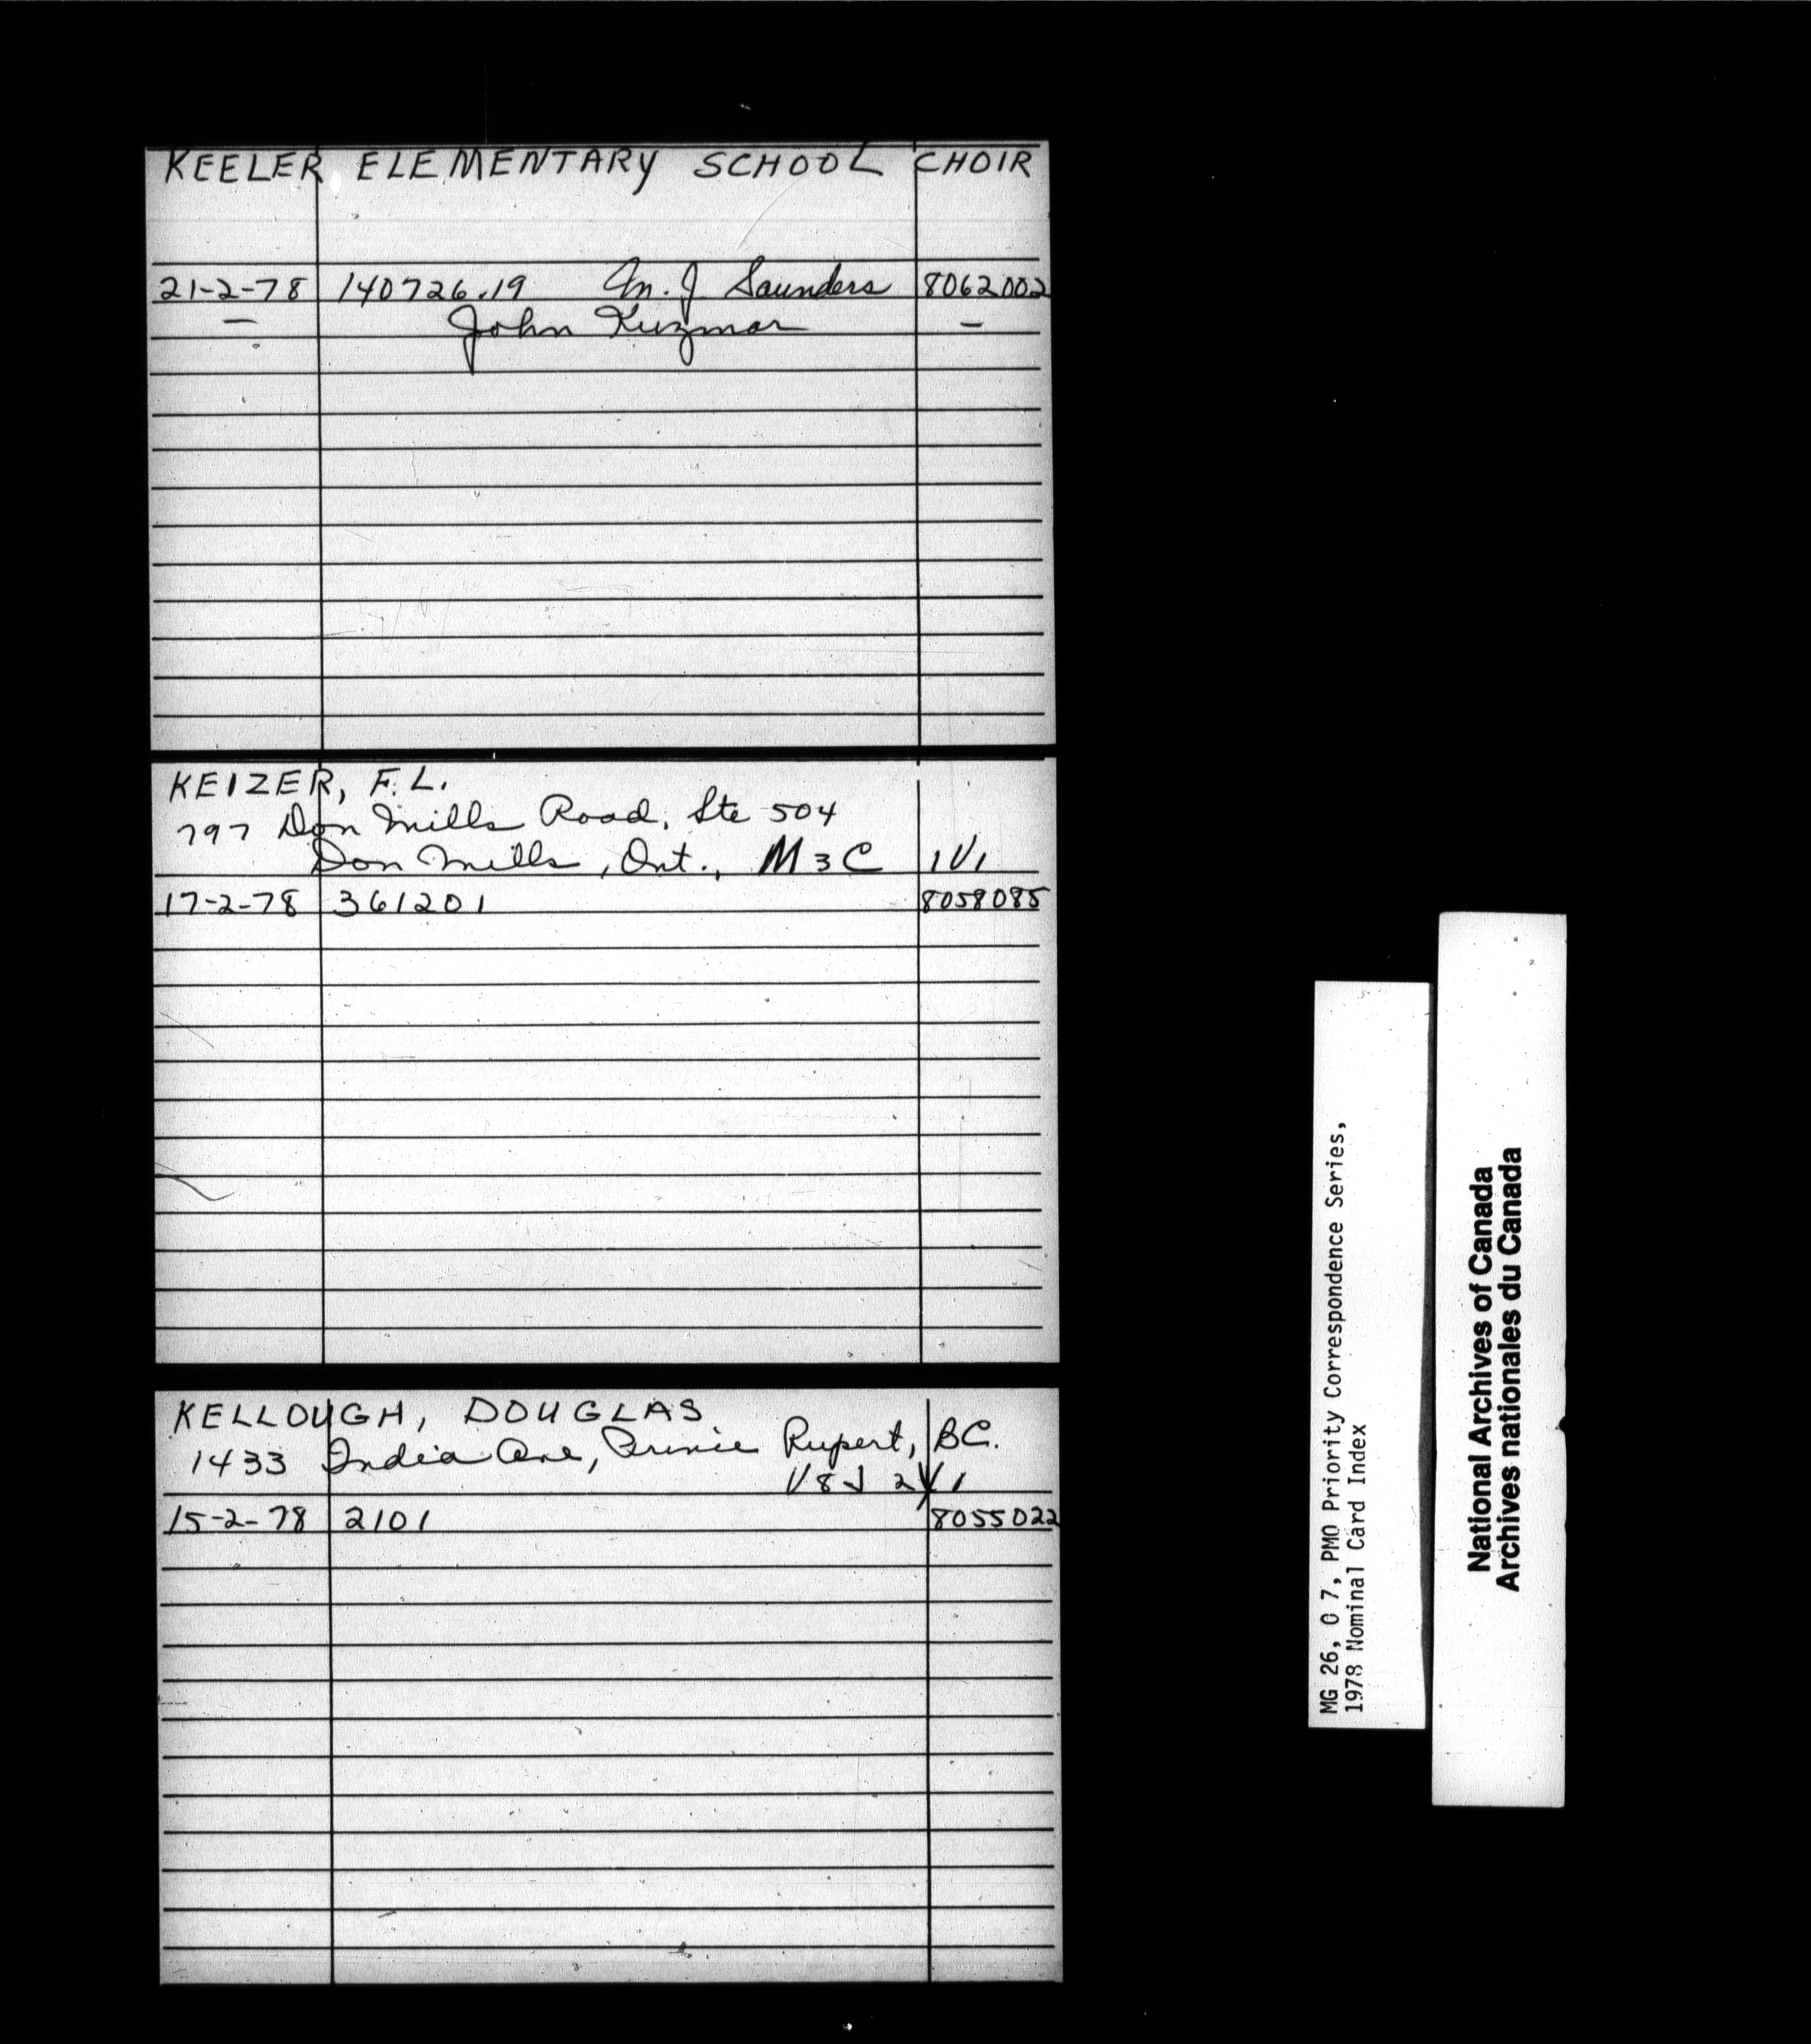 KEELER ELEMENTARY SCHOOL CHOIR
21-2-78 140726.19 M. J Saunders 8062002
— John Kuzmar —
KEIZER, F.L.
797 Don Mills Road, Ste 504
Don Mills, Ont., M3C 1V1
17-2-78 361201 8058085
KELLOUGH, DOUGLAS
1433 India Ave, Prince Rupert, BC.
V8J 2Y1
15-2-78 2101 8055022
MG 26, O 7, PMO Priority Correspondence Series,
1978 Nominal Card Index
National Archives of Canada
Archives nationales du Canada